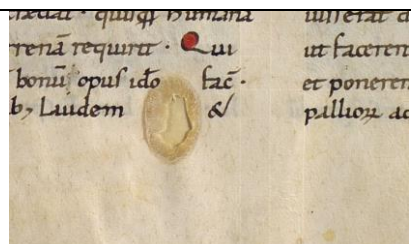 rrenā requirit · Qui
bonū opuſ idō fac̄ ·
b; Laudem &
ut facerem
et poneren
pallioꝝ ac